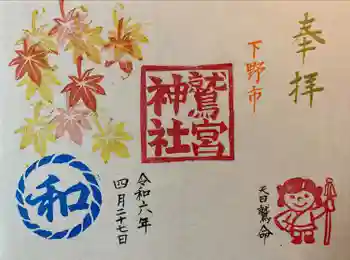 奉拝
下野市
鷲宮
神社
令和六年
四月二十七日
天日鷲命
和